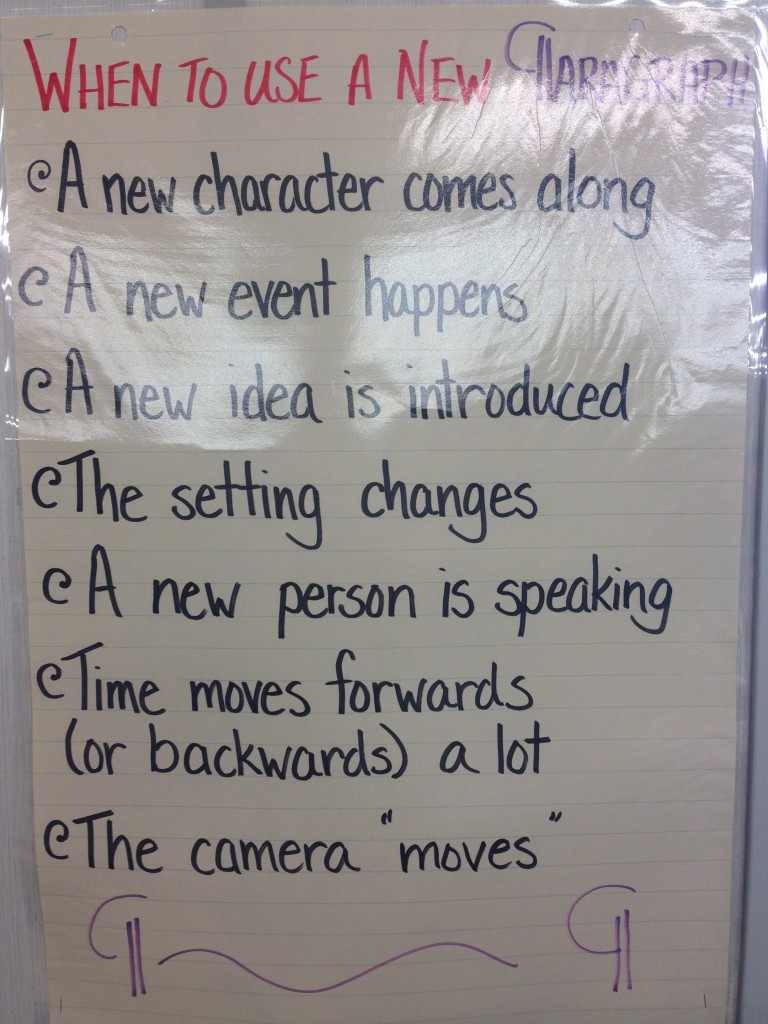 WHEN TO USE A NEW ¶ARAGRAPH
A new character comes along
A new event happens
A new idea is introduced
The setting changes
A new person is speaking
Time moves forwards
(or backwards) a lot
The camera "moves"
¶ ¶